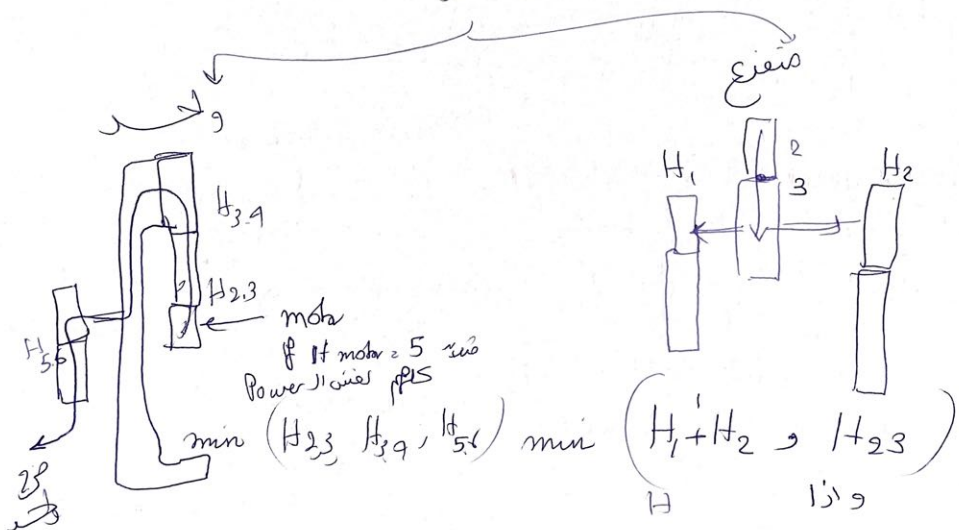 متفرع
واحد
H₁
2
3
H₂
H₃.₄
H₂.₃
H₅.₆
motor
if H motor = 5
Power
min (H₂.₃, H₃.₄, H₅.₆)
min (H₁ + H₂ , H₂₃)
H
واذا